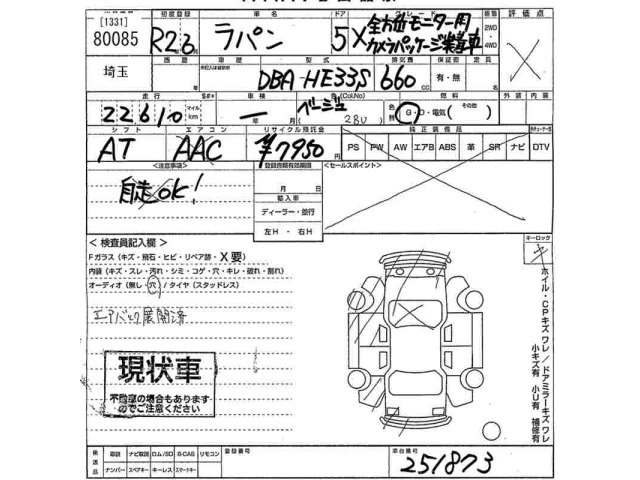 [1331]
80085
埼玉
初度登録
車名
ドア
グレード
評価点
R2 6
ラパン
5
X 全方位モニター用
カメラパッケージ装着車
2WD
4WD
車歴
車検
型式
排気量
保証書
定員
DBA-HE33S
660
CC
有・無
走行
車検
(Col.No)
燃料
外装
内装
22610
マイル
km
ベージュ
年 月
28U
G・D・電気( その他 )
シフト
エアコン
リサイクル預託金
純正装備品
AT
AAC
¥7950
PS PW AW エアB ABS 革 SR ナビ DTV
<注意事項>
自走OK!
登録書類有効期限
月 日
輸入車
ディーラー・並行
左H ・ 右H
<セールスポイント>
キーロック
キ
<検査員記入欄>
Fガラス(キズ・飛石・ヒビ・リペア跡・X要)
内装(キズ・スレ・汚れ・シミ・コゲ・穴・キレ・破れ・割れ)
オーディオ(無し・穴)/タイヤ(スタッドレス)
エアバック展開済
現状車
不具合の場合もあります
のでご注意ください
ホイル・CPキズワレ/ドアミラーキズワレ
小キズ有 小U有 補修有
後送品
取説 ナビ取説 ロム/SD B-CAS リモコン
ナンバー スペアキー キーレス スマートキー
登録番号
車台番号
251873